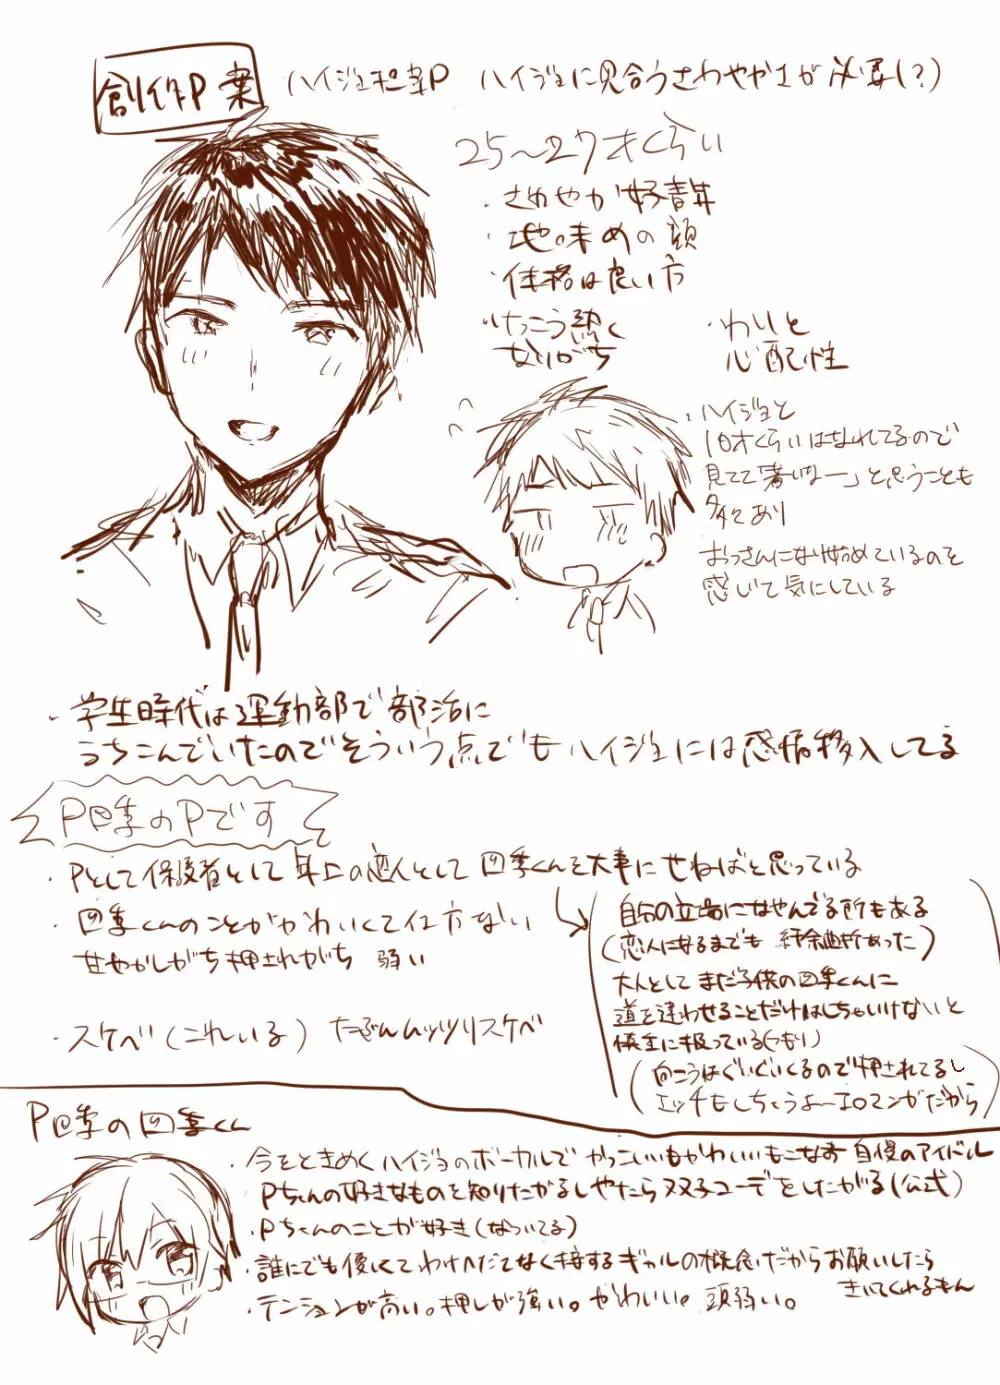 創作P案
ハイジョ担当P ハイジョに見合うさわやかさが必要(?)
25〜27才くらい
・さわやか好青年
・地味めの顔
・体格は良い方
・けっこう熱く
なりがち
・わりと
心配性
・ハイジョと
10才くらいはなれてるので
見てて「若いなー」と思うことも
多々あり
おっさんになり始めているのを
感じて気にしている
・学生時代は運動部で部活に
うちこんでいたのでそういう点でもハイジョには感情移入してる
P四季のPです
・Pとして保護者として年上の恋人として四季くんを大事にせねばと思っている
・四季くんのことがかわいくて仕方ない
甘やかしがち押されがち 弱い
・スケベ(これいる) たぶんムッツリスケベ
自分の立場になやんでる所もある
(恋人になるまでも紆余曲折あった)
大人としてまだ子供の四季くんに
道を違わせることだけはしちゃいけないと
慎重に扱っている(つもり)
(向こうはぐいぐいくるので押されてるし
エッチもしちゃうよ〜エロマンガだから)
P四季の四季くん
・今をときめくハイジョのボーカルでかっこいいもかわいいもこなす自慢のアイドル
Pちゃんの好きなものを知りたがるしやたら双子コーデをしたがる(公式)
・Pちゃんのことが好き(なついてる)
・誰にでも優しくてわけへだてなく接するギャルの概念だからお願いしたら
きいてくれるもん
・テンションが高い。押しが強い。かわいい。頭弱い。